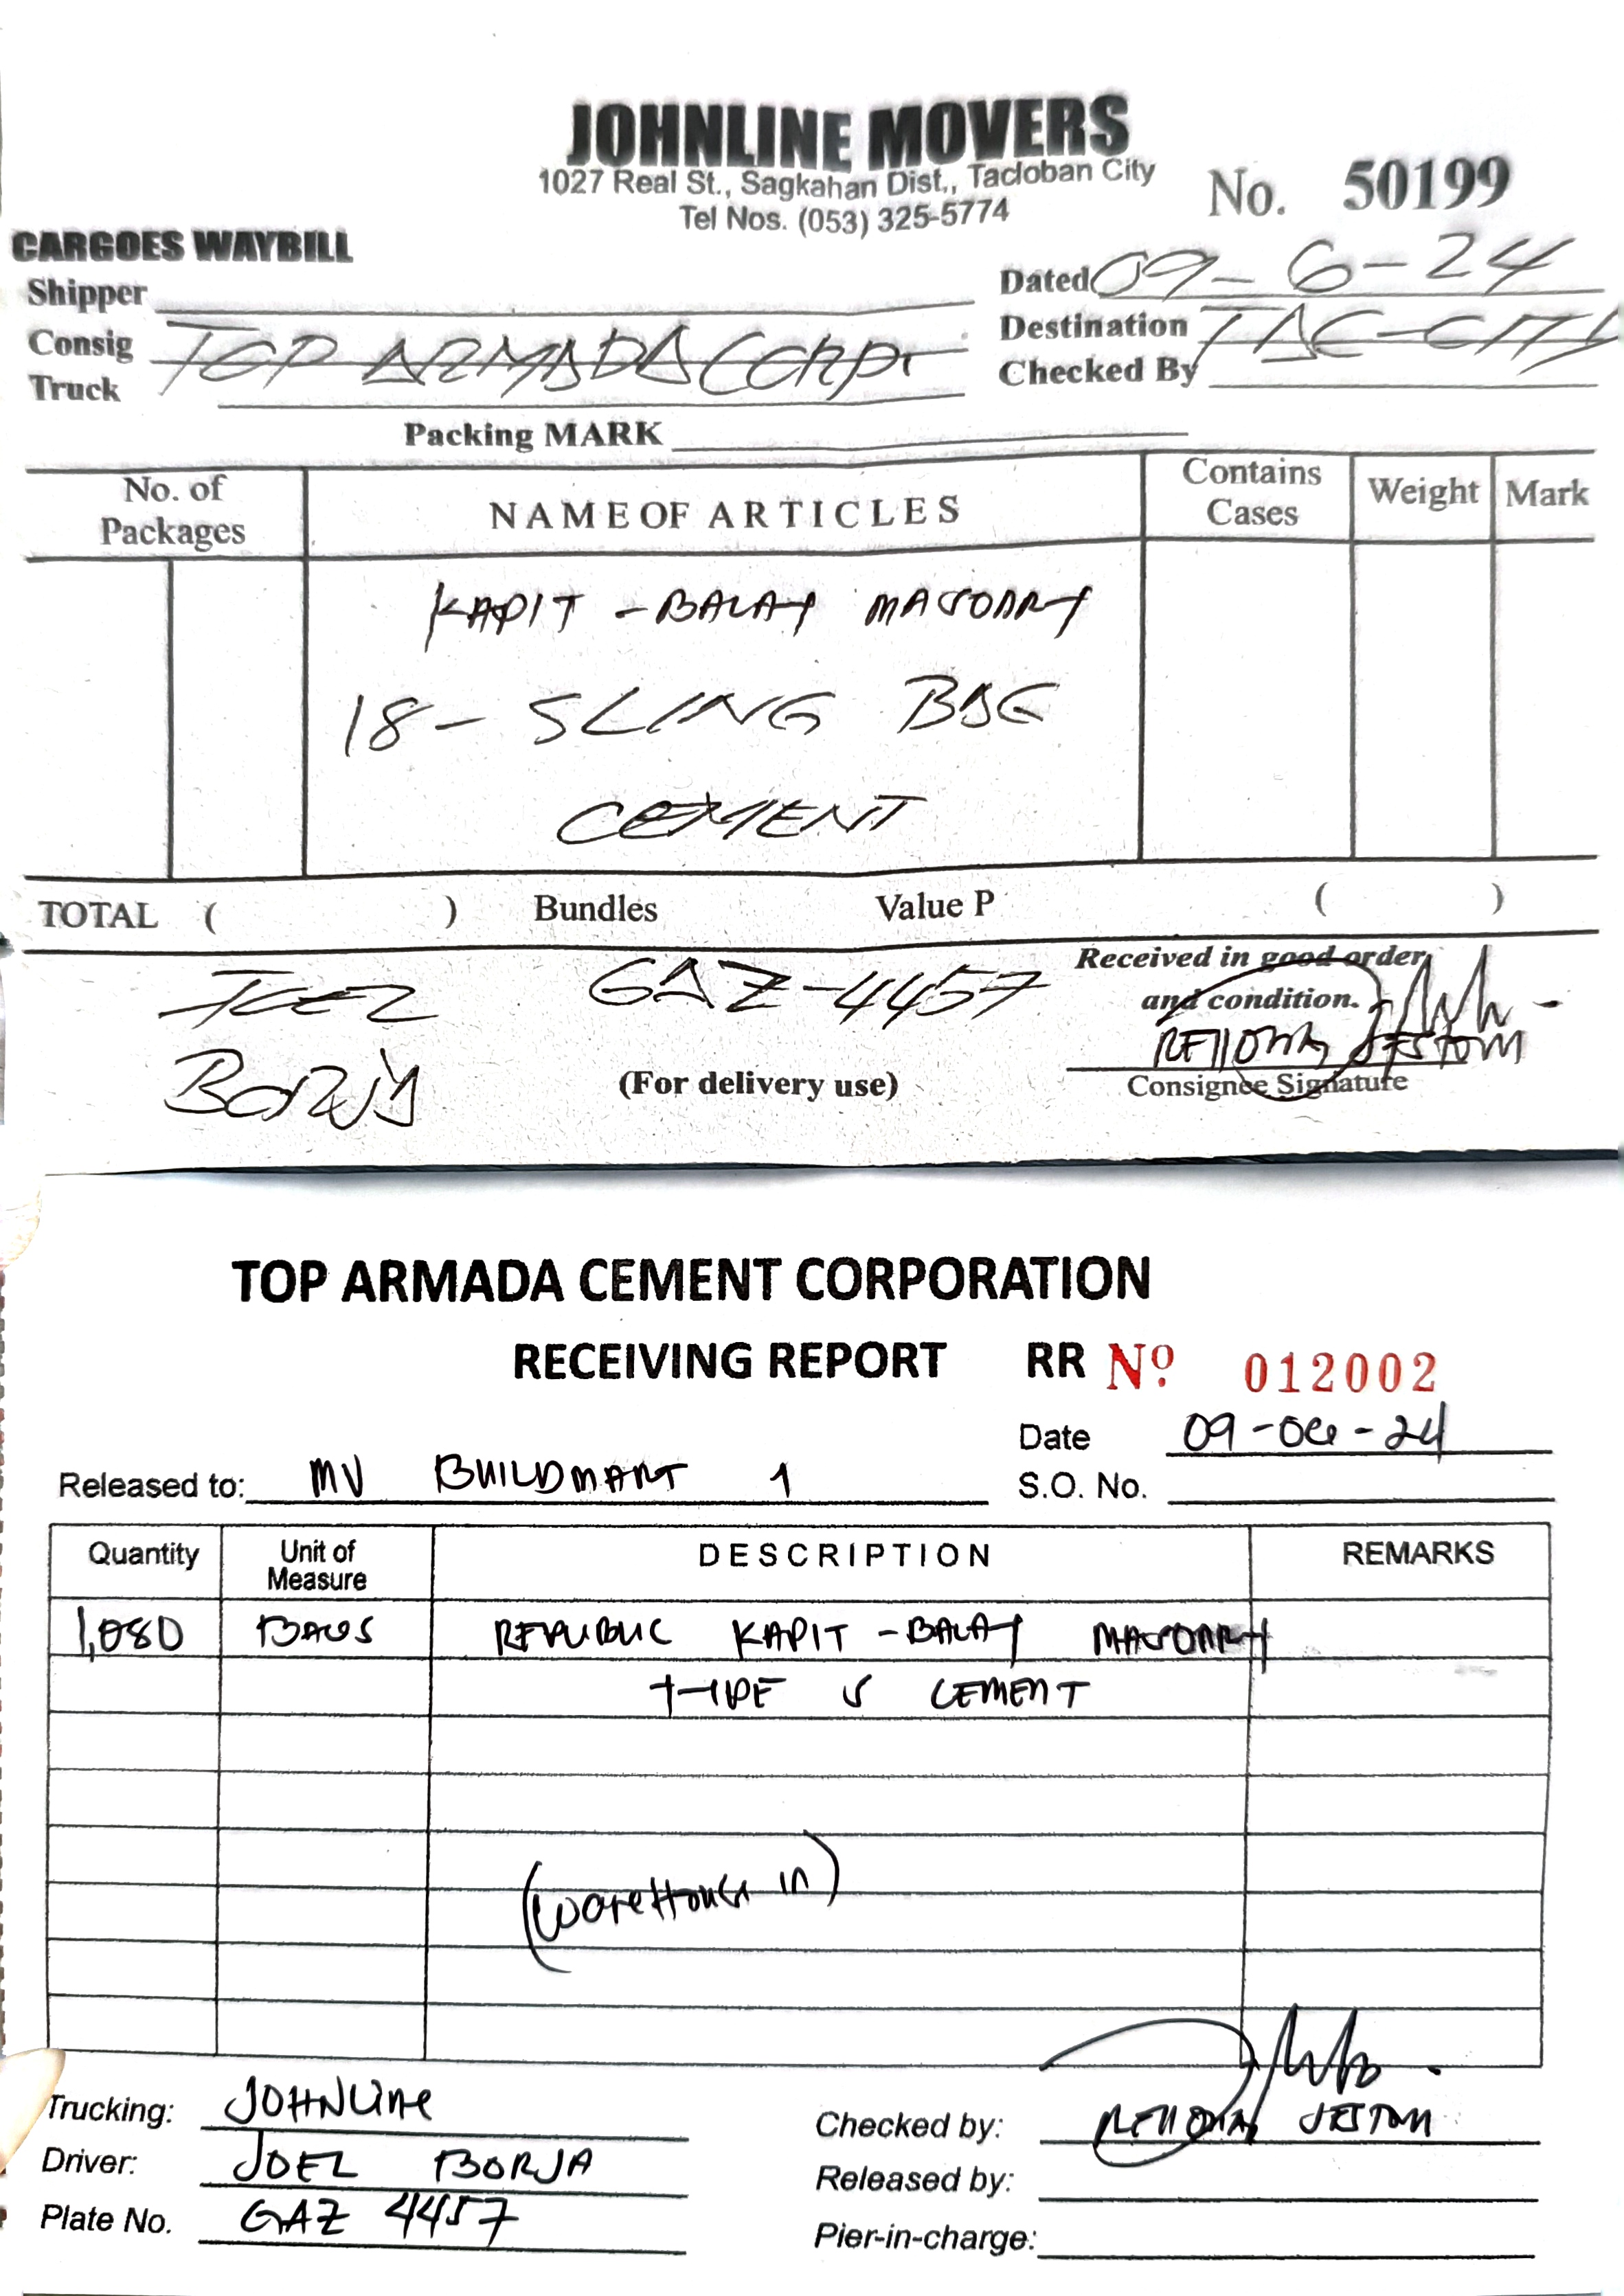 JOHNLINE MOVERS
1027 Real St., Sagkahan Dist., Tacloban City
Tel Nos. (053) 325-5774
No. 50199
CARGOES WAYBILL
Shipper
Dated 09-6-24
Consig TOP ARMADA CORP.
Destination TAC-CITY
Truck
Checked By
Packing MARK
No. of Packages NAME OF ARTICLES Contains Cases Weight Mark
KAPIT-BALAY MASONRY
18- SLING BAG
CEMENT
TOTAL ( ) Bundles Value P ( )
JOEL GAZ-4457 Received in good order
and condition.
BORJA (For delivery use)
Consignee Signature
TOP ARMADA CEMENT CORPORATION
RECEIVING REPORT RR Nº 012002
Date 09-06-24
Released to: MV BUILDMART 1
S.O. No.
Quantity Unit of Measure DESCRIPTION REMARKS
1,080 BAGS REPUBLIC KAPIT-BALAY MASONRY
TYPE S CEMENT
(WareHouse in)
Trucking: JOHNLINE
Checked by:
Driver: JOEL BORJA
Released by:
Plate No. GAZ 4457
Pier-in-charge: